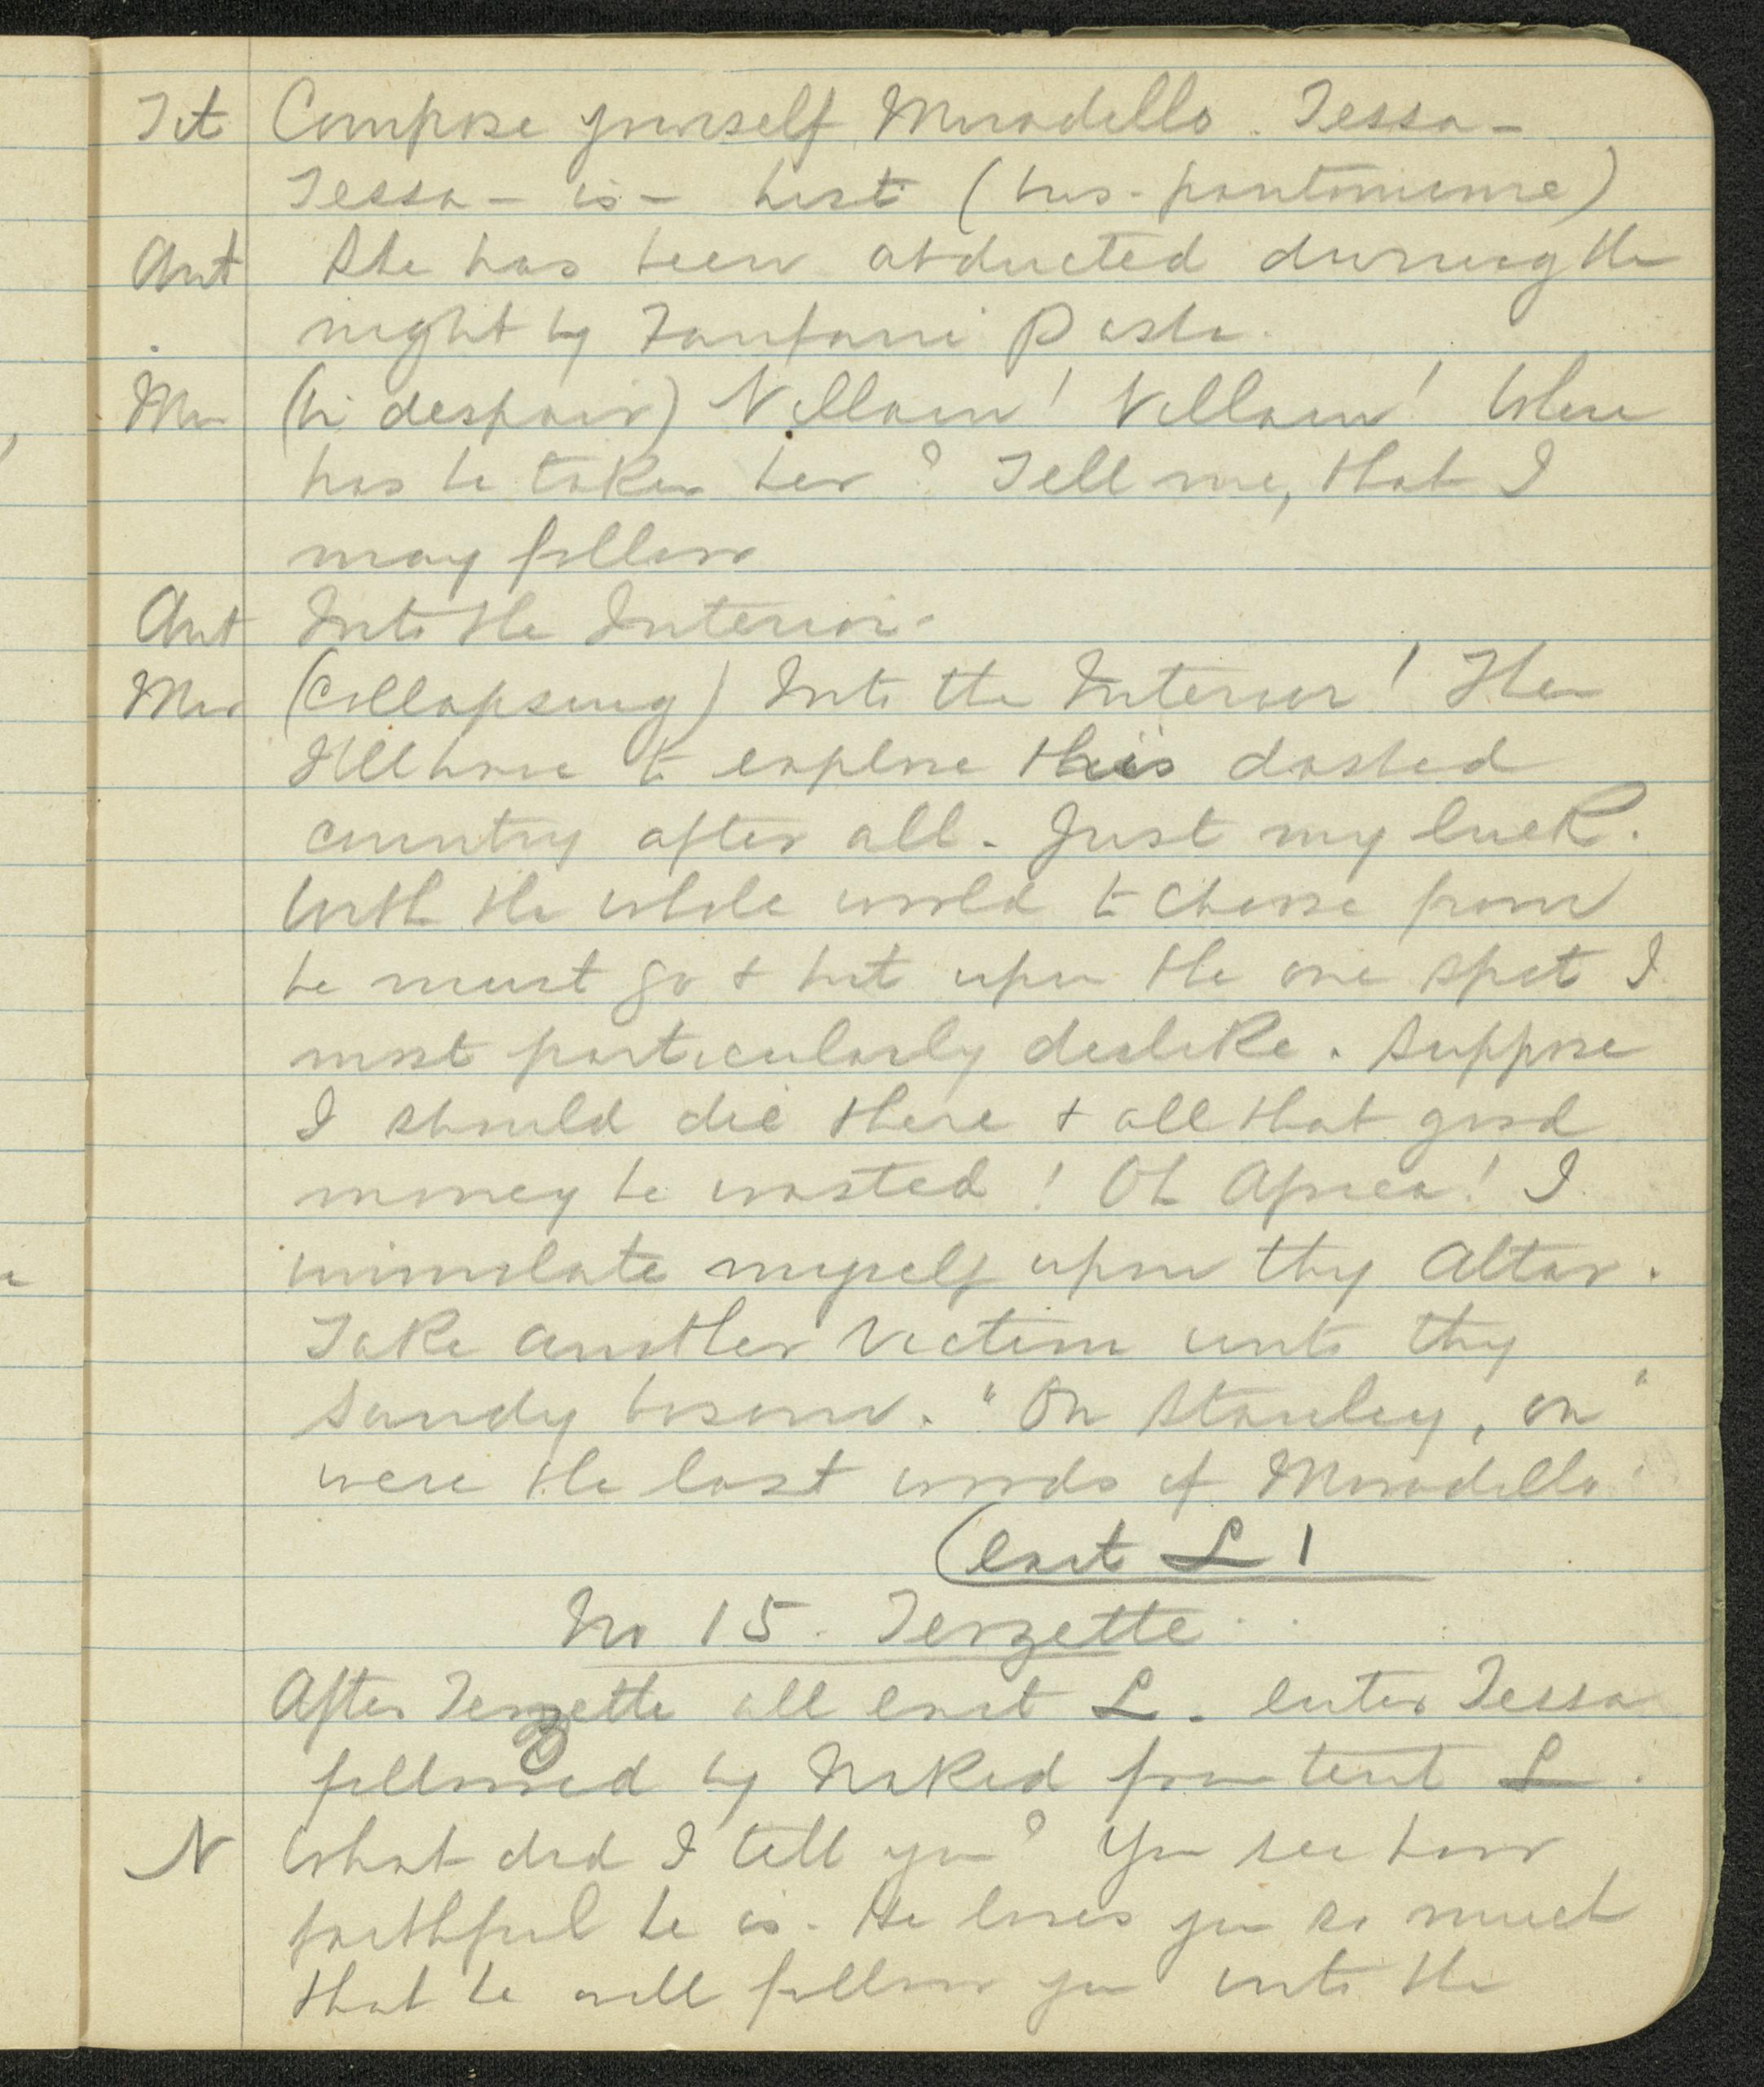 Tit Compose yourself Muradillo. Tessa -
Tessa - is - lost (bus. pantomime)
Ant She has been abducted during the
night by Fanfani Pasha.
Mu (in despair) Villain! Villain! Where
has he taken her? Tell me, that I
may follow
Ant Into the Interior.
Mur (Collapsing) Into the Interior! Then
I'll have to explore this dashed
country after all. Just my luck.
With the whole world to choose from
he must go & hit upon the one spot I
most particularly dislike. Suppose
I should die there & all that good
money be wasted! Oh Africa! I
immolate myself upon thy Altar.
Take another victim unto thy
Sandy bosom. "On Stanley, on"
were the last words of Muradillo
(exit L 1
No 15. Terzette
After Terzette all exit L. enter Tessa
followed by Naked from tent L.
N What did I tell you? You see how
faithful he is. He loves you so much
that he will follow you into the